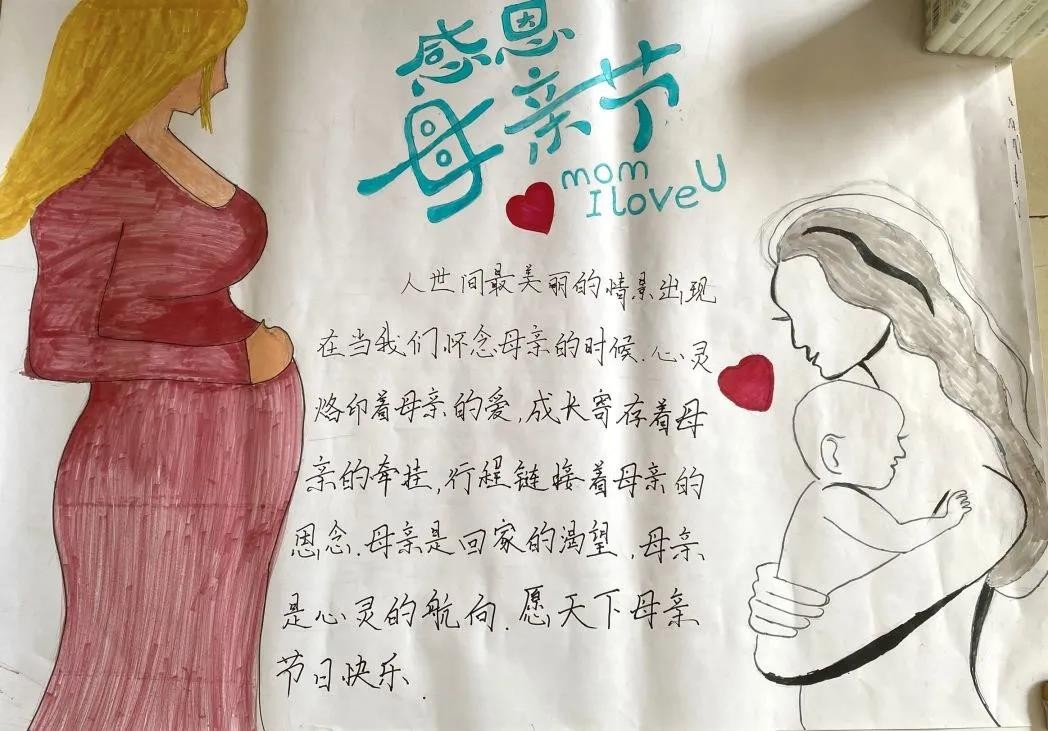 感恩
母亲节
mom
I love U
人世间最美丽的情景出现
在当我们怀念母亲的时候.心灵
烙印着母亲的爱,成长寄存着母
亲的牵挂,行程链接着母亲的
恩念.母亲是回家的渴望,母亲
是心灵的航向.愿天下母亲
节日快乐.